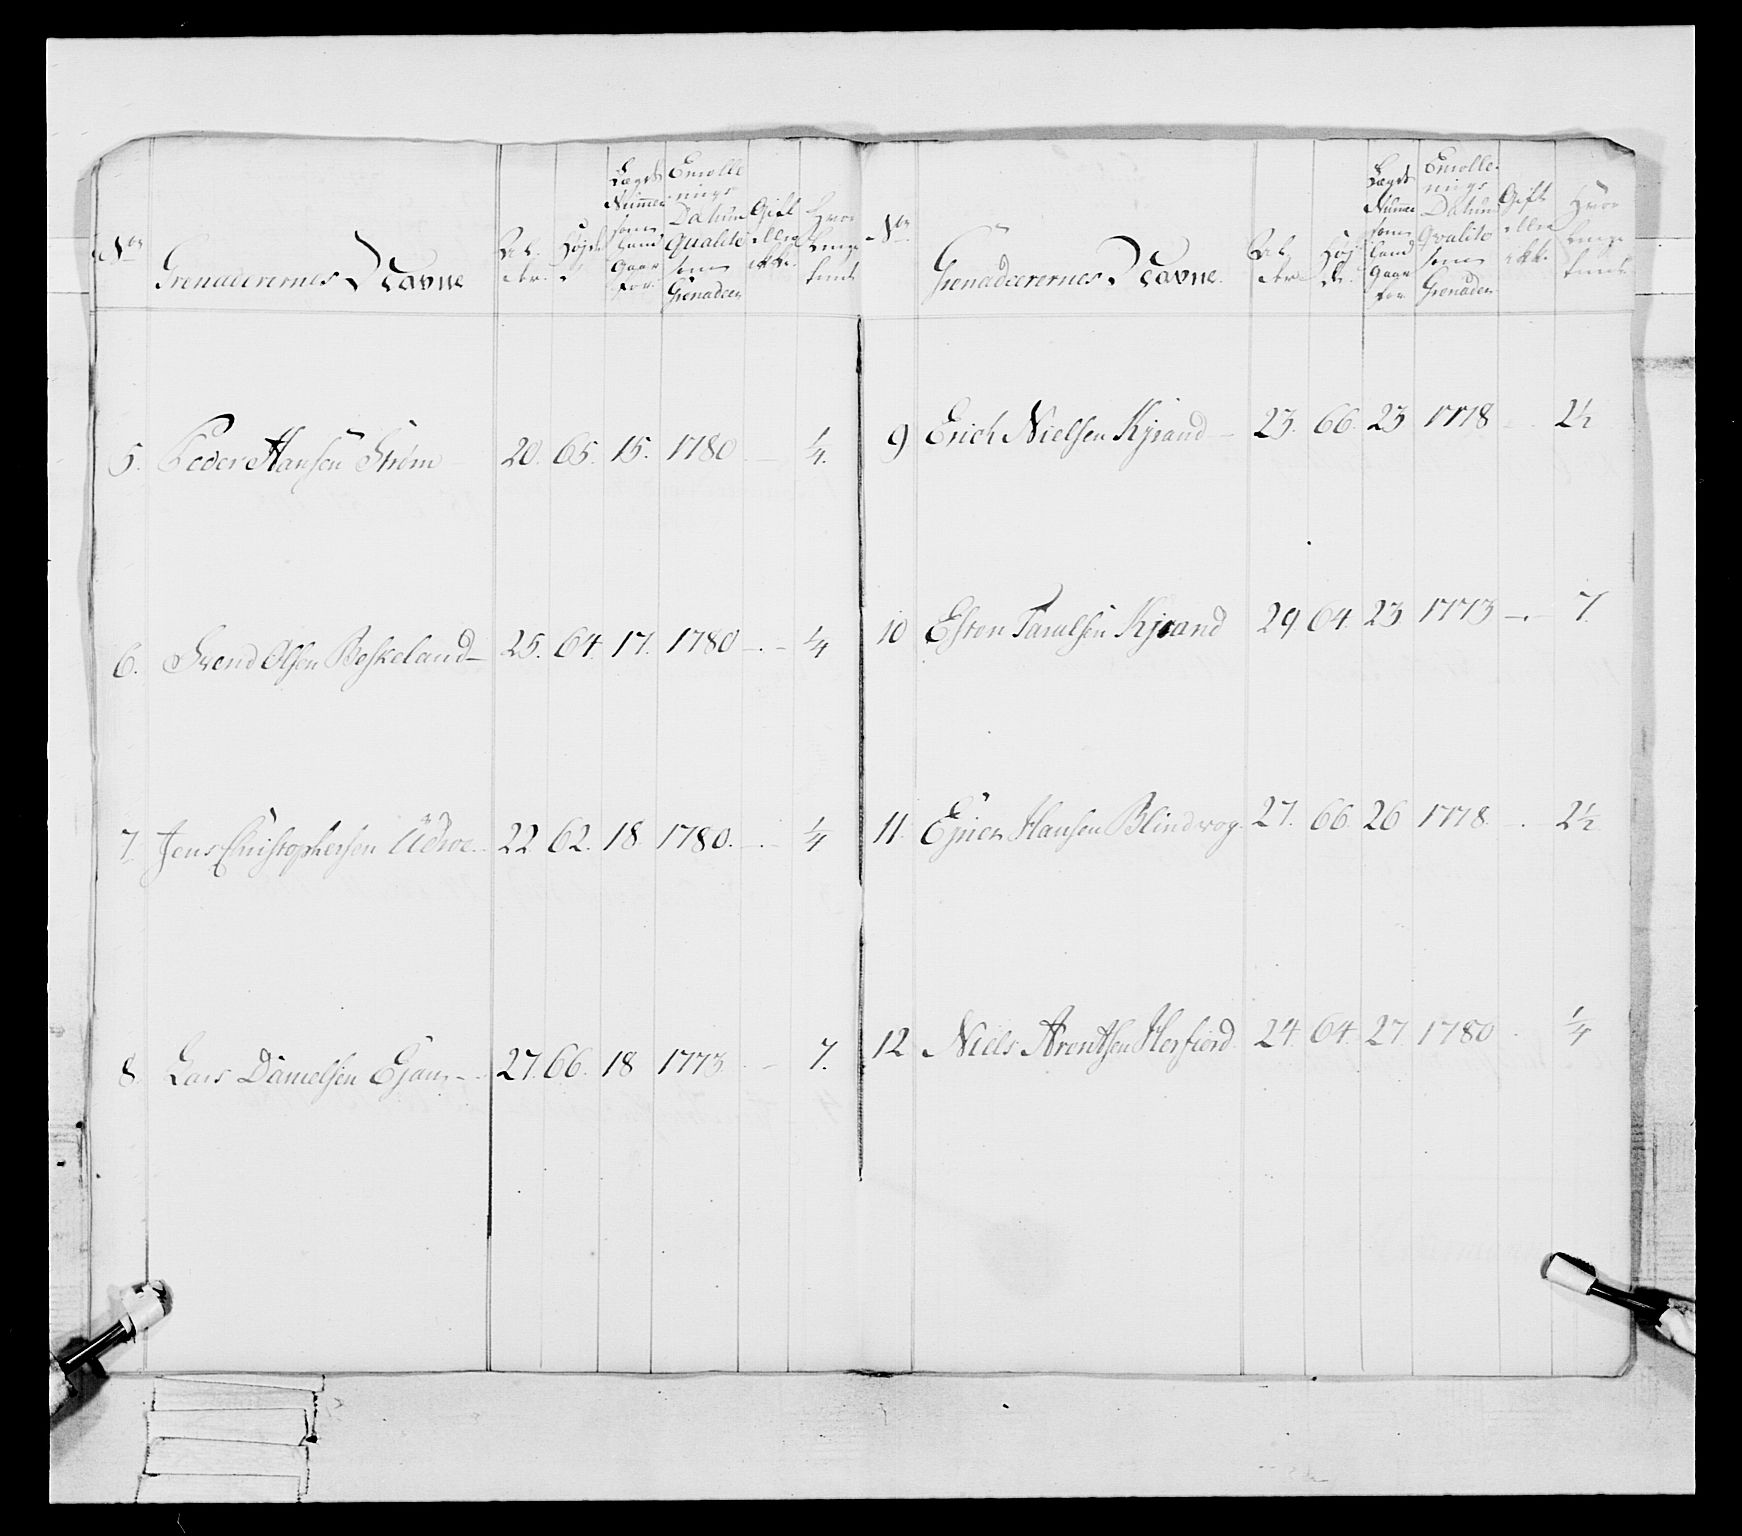 No Grenaderernes Navne Al, der. Højde Lægds Nummer som hand gaar for. Enrolle nings Datum Qualite som Grenadeer Gift eller ikke. Hvor lenge tient
5. Peder Hansen Strøm 20. 65. 15. 1780. — ¼.
6. Svend Olsen Beskeland — 25. 64. 17. 1780 — . — ¼
7 Jens Christophersen 22 62. 18. 1780. — . — ¼
8. Lars Danielsen 27. 66. 18 1773. — 7.
No Grenadeerernes Navne. Al, der Høj de. Lægds Numer som hand gaar for Enrolle. nings Datum Qvalite som Grenadeer Gift eller ikke. Hvor lenge tient
9 Erich Nielsen Kjrand — 23. 66. 23 1778 2½
10 Esten Kjrand 29 64. 23 1773 — . — 7.
11. Ejner Hansen Blindvog. 27. 66. 26 1778. — . 2½
12 Niels Arentsen Herfiord. 24. 64. 27. 1780 . ¼